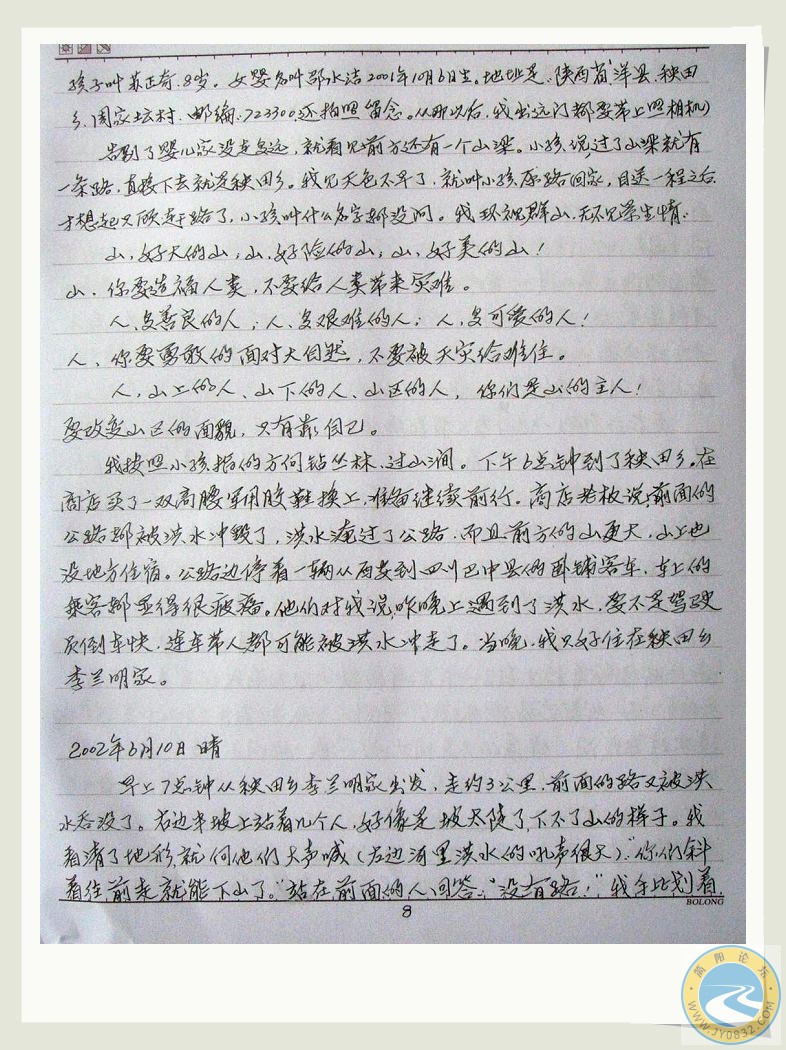 孩子叫苏正奇.8岁。女婴名叫邵水洁2001年10月6日生。地址是:陕西省洋县.秧田
乡.周家坛村.邮编:723300.还拍照留念。从那以后,我出远门都要带上照相机)
告别了婴儿家没走多远,就看见前方还有一个山梁。小孩说,过了山梁就有
一条路,直接下去就是秧田乡。我见天色不早了,就叫小孩原路回家,目送一程之后
才想起只顾走路了,小孩叫什么名字都没问。我环视群山,无不见景生情:
山,好大的山;山,好险的山;山,好美的山!
山.你要造福人类,不要给人类带来灾难。
人,多善良的人;人,多艰难的人;人,多可爱的人!
人、你要勇敢的面对大自然,不要被天灾给难住。
人,山上的人、山下的人、山区的人,你们是山的主人!
要改变山区的面貌,只有靠自己。
我按照小孩指的方向钻丛林,过山涧。下午6点钟到了秧田乡。在
商店买了一双高腰军用胶鞋换上,准备继续前行。商店老板说,前面的
公路都被洪水冲毁了,洪水淹过了公路.而且前方的山更大,山上也
没地方住宿。公路边停着一辆从西安到四川巴中县的卧铺客车,车上的
乘客都显得很疲惫。他们对我说,昨晚上遇到了洪水,要不是驾驶
员倒车快,连车带人都可能被洪水冲走了。当晚,我只好住在秧田乡
李兰明家。
2002年6月10日 晴
早上7点钟从秧田乡李兰明家出发,走约3公里,前面的路又被洪
水吞没了。右边半坡上站着几个人,好像是坡太陡了,下不了山的样子。我
看清了地形就向他们大声喊(右边河里洪水的吼声很大):"你们斜
着往前走就能下山了。"站在前面的人回答:"没有路!"我手比划着
BOLONG
8
简阳论坛
WWW.JY0832.COM